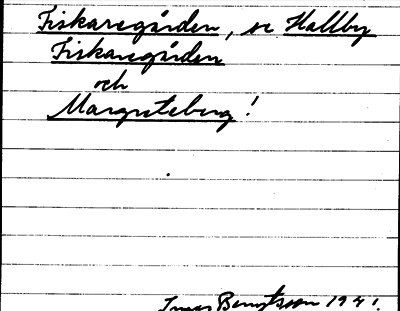 Fiskaregården, se Hallby
Fiskaregården
och
Margreteberg!
Bengtsson 1941.